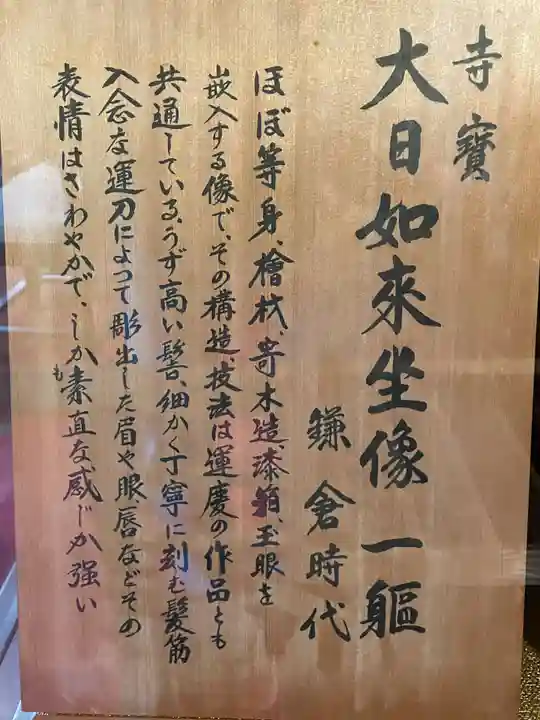 寺寳
大日如來坐像 一軀
鎌倉時代
ほぼ等身、檜材、寄木造、漆箔、玉眼を
嵌入する像で、その構造、技法は運慶の作品とも
共通している、うず高い髻、細かく丁寧に刻む髪筋
入念な運刀によって彫出した眉や眼唇などその
表情はさわやかで、しかも素直な感じか強い